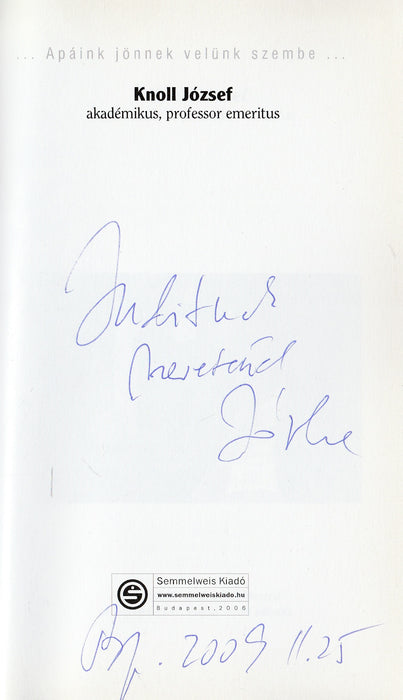 ... Apáink jönnek velünk szembe ...
Knoll József
akadémikus, professor emeritus
Juditnak
szeretettel
Jóska
Semmelweis Kiadó
www.semmelweiskiado.hu
Budapest, 2006
Bp. 2009 11.25